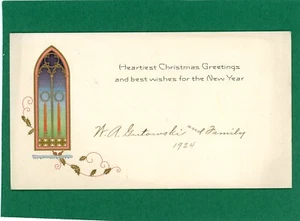 Heartiest Christmas Greetings
and best wishes for the New Year
W. A. Gutowski and Family
1924